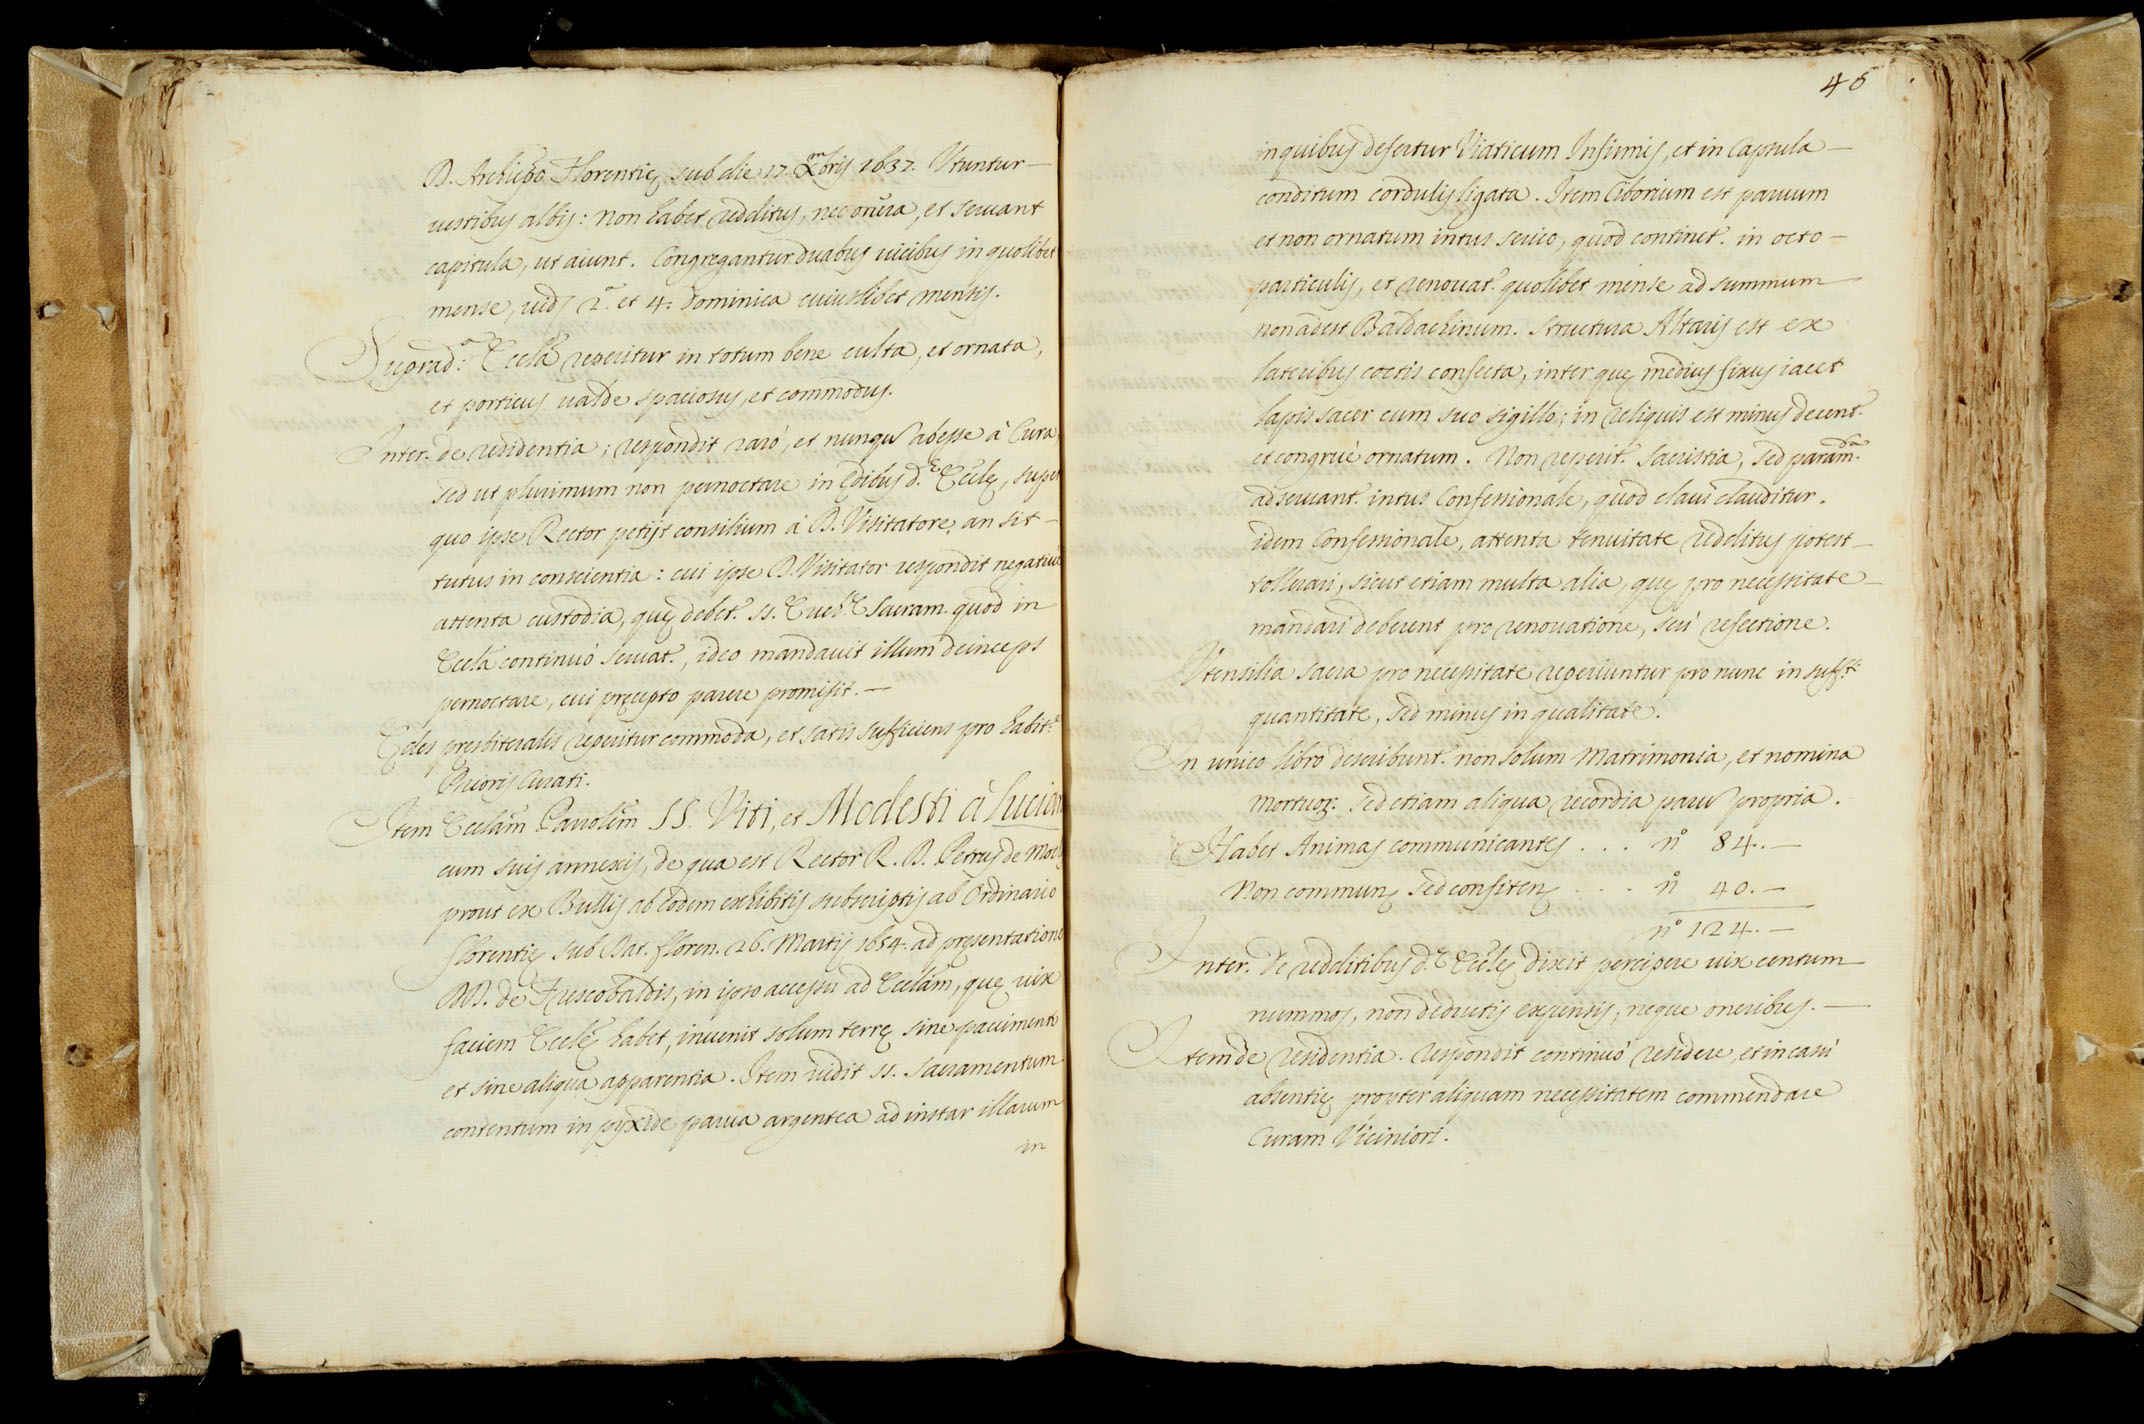 D. Archiepō Florentię sub die 17. Xmbris 1637. Utuntur –
vestibus albis: non habet redditus, nec onera, et servant
capitula, ut aiunt. Congregantur duabus vicibus in quolibet
mense, vids 2.ª et 4.ª Dominica cuiuslibet mensis.
Suprad.ª Eccla reperitur in totum bene culta, et ornata,
et porticus valde spaciosus, et commodus.
Inter. de residentia; respondit raró, et nunqu abesse à Cura
sed ut plurimum non pernoctare in ędibus d.ę Ecclę, super
quo ipse Rector petijt consilium à D. Visitatore, an sit –
tutus in conscientia: cui ipse D. Visitator respondit negativè
attenta custodia, quę debet. SS. Euch.ę Sacram. quod in
Eccla continuò servat., ideo mandavit illum deinceps
pernoctare, cui pręcepto parere promisit. –
Ędes presbiteralis reperitur commoda, et satis sufficiens pro habit.e
Prioris Curati.
Item Ecclam Parrolem SS. Viti, et Modesti à Lucian
cum suis annexis, de qua est Rector R. D. Petrus de
prout ex Bullis ab eodem exhibitis subscriptis ab Ordinario
Florentię sub Dat. Floren. 26. Martij 1654. ad pręsentatione
DD. de Frescobaldis, in ipso accessu ad Ecclam, quę vix
faciem Ecclę habet, invenit solum terrę sine pavimento
et sine aliqua apparentia. Item vidit SS. Sacramentum
contentum in pyxide parva argentea ad instar illarum
in
45
in quibus defertur Viaticum Infirmis, et in Capsula –
conditum cordulis ligata. Item Ciborium est parvum
et non ornatum intus serico, quod continet. in octo –
particulis, et renovat. quolibet mense ad summum
non adest Baldachinum. Structura Altaris est ex
lateribus coctis confecta, inter quę medius fixus iacet
lapis sacer cum suo sigillo; in reliquis est minus decent.
et congruè ornatum. Non reperit. Sacristia, sed param.ta
adservant. intus Confessionale, quod clavi clauditur.
idem Confessionale, attenta tenuitate redditus potest –
tollerari, sicut etiam multa alia, quę pro necessitate –
mandari deberent pro renovatione, seù refectione.
Utensilia sacra pro necessitate reperiuntur pro nunc in suff.te
quantitate, sed minus in qualitate.
In unico libro describunt. non solum Matrimonia, et nomina
mortuoꝝ. sed etiam aliqua recordia paru propria.
Habet Animas communicantes . . . nº 84. –
Non communꝫ sed confitenꝫ . . . . nº 40. –
nº 124. –
Inter. de redditibus d.ę Ecclę dixit percipere vix centum
nummos, non deductis expensis, neque oneribus. –
Item de residentia. respondit continuò residere, et in casu
absentię propter aliquam necessitatem commendare
Curam Viciniori.